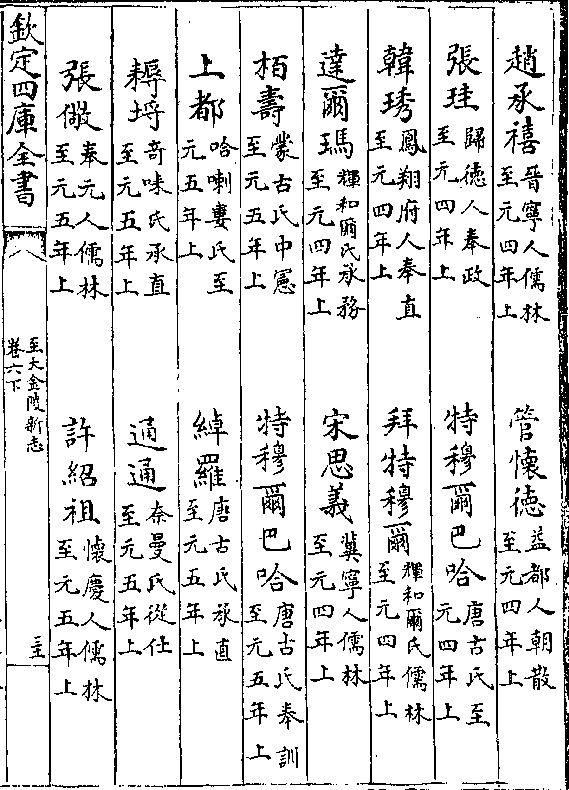 趙承禧晉寧人儒林至元四年上　管懷德益都人朝散至元四年上
張珪歸徳人奉政至元四年上　特穆爾巴哈唐古氏至元四年上
韓琇鳳翔府人奉直至元四年上　拜特穆爾輝和爾氏儒林至元四年上
達爾瑪輝和爾氏承務至元四年上　宋思義兾寧人儒林至元四年上
栢壽蒙古氏中憲至元五年上　特穆爾巴哈唐古氏奉訓至元五年上
上都哈喇婁氏至元五年上　綽羅唐古氏承直至元五年上
耨埒奇味氏承直至元五年上　通通奈曼氏從仕至元五年上
張儆奉元人儒林至元五年上　許紹祖懷慶人儒林至元五年上
欽定四庫全書
至大金陵新志
卷六下